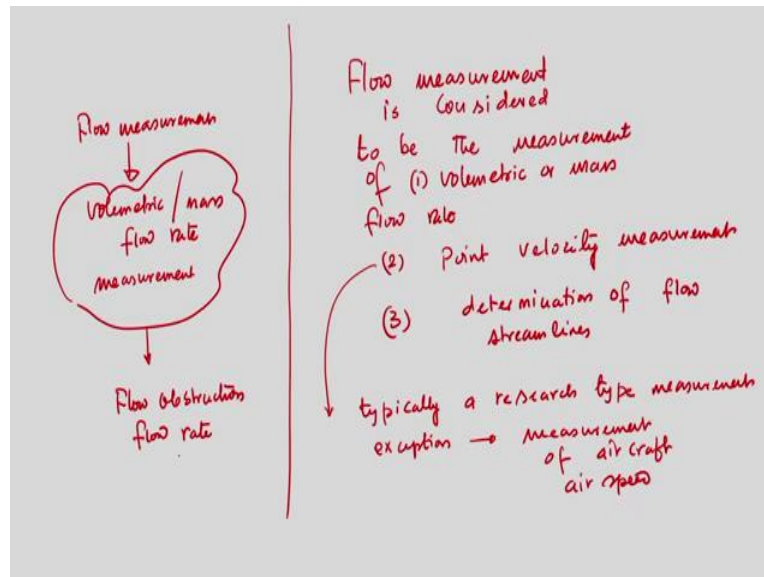 Flow measurement
volumetric / mass
flow rate
measurement
Flow obstruction
flow rate
Flow measurement
is considered
to be the measurement
of (1) volumetric or mass
flow rate
(2) Point velocity measurement
(3) determination of flow
streamlines
typically a research type measurement
exception → measurement
of aircraft
air speed